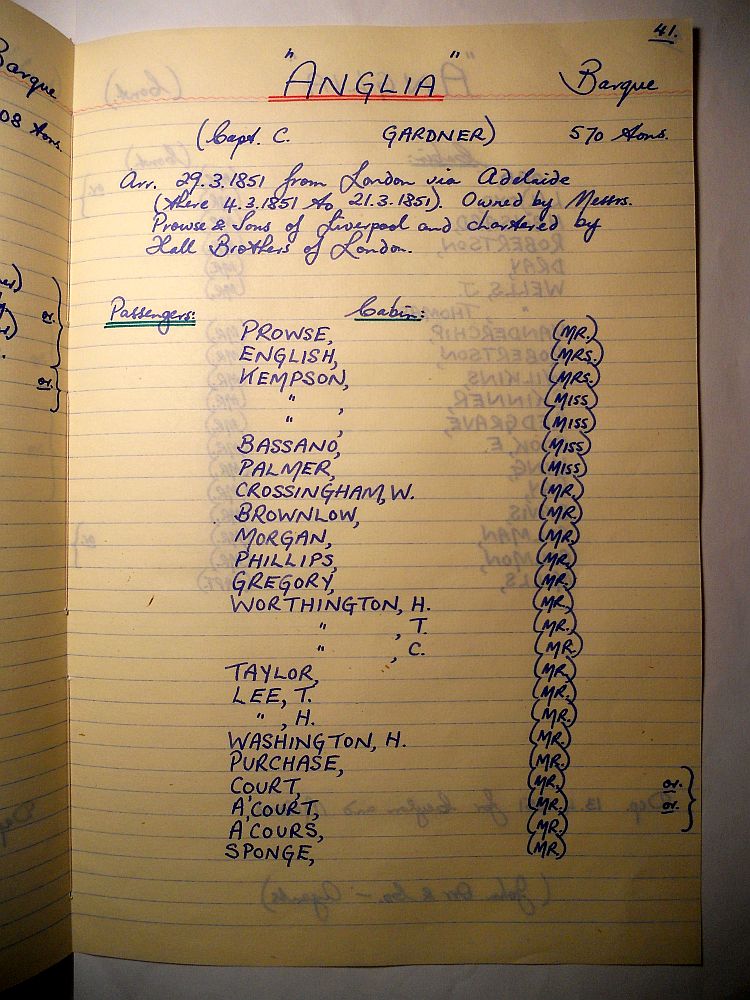 41.
"ANGLIA" Barque
(Capt. C. GARDNER) 570 tons.
Arr. 29.3.1851 from London via Adelaide
(there 4.3.1851 to 21.3.1851). Owned by Messrs.
Prowse & Sons of Liverpool and chartered by
Hall Brothers of London.
Passengers: Cabin:
PROWSE, (MR.)
ENGLISH, (MRS.)
KEMPSON, (MRS.)
" , (MISS)
" , (MISS)
BASSANO, (MISS)
PALMER, (MISS)
CROSSINGHAM, W. (MR.)
BROWNLOW, (MR.)
MORGAN, (MR.)
PHILLIPS, (MR.)
GREGORY, (MR.)
WORTHINGTON, H. (MR.)
" , T. (MR.)
" , C. (MR.)
TAYLOR, (MR.)
LEE, T. (MR.)
" , H. (MR.)
WASHINGTON, H. (MR.)
PURCHASE, (MR.)
COURT, (MR.) or.
A'COURT, (MR.) or.
A'COURS, (MR.)
SPONGE, (MR.)
Barque
08 tons.
or.
or.